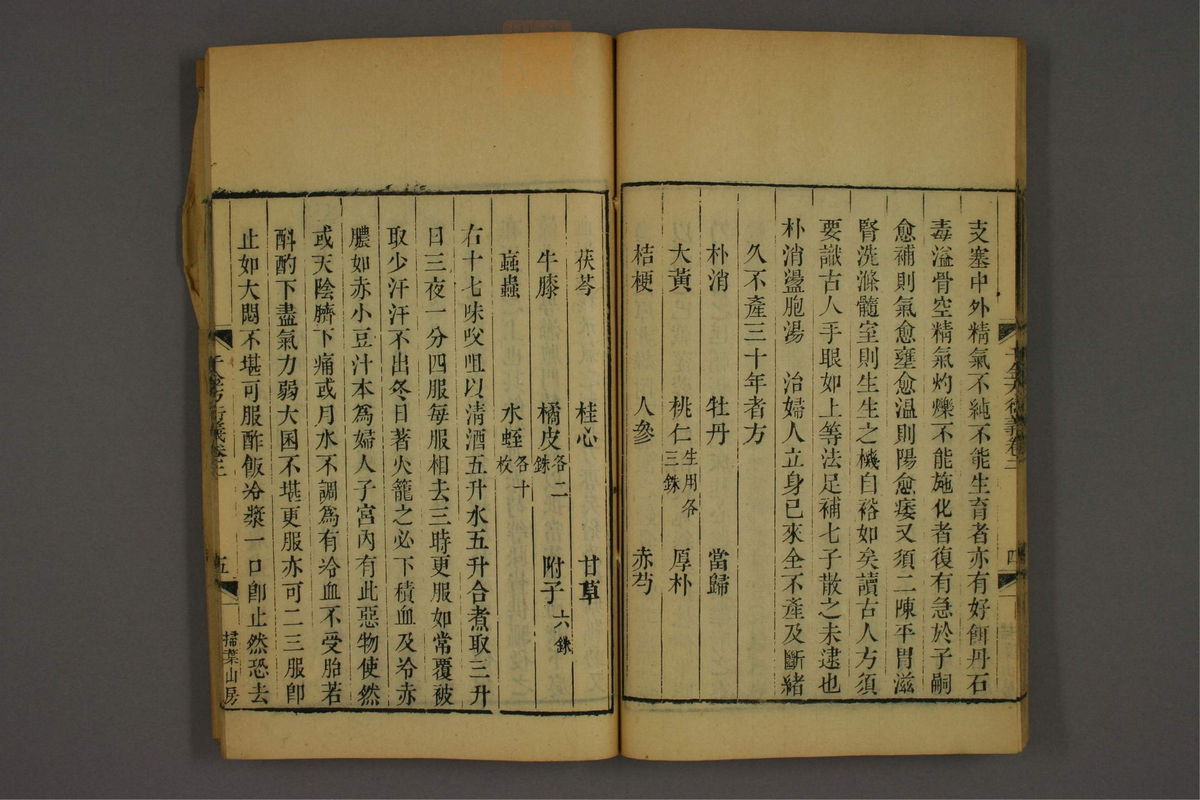 支塞中外精氣不純不能生育者亦有好餌丹石
毒溢骨空精氣灼爍不能施化者復有急於子嗣
愈補則氣愈壅愈温則陽愈痿又須二陳平胃滋
腎洗滌髓室則生生之機自裕如矣讀古人方須
要識古人手眼如上等法足補七子散之未逮也
朴消盪胞湯　治婦人立身已來全不產及斷緒
久不產三十年者方
朴消　牡丹　當歸
大黃　桃仁生用各三銖　厚朴
桔梗　人參　赤芍
茯苓　桂心　甘草
牛膝　橘皮各二銖　附子六銖
蝱蟲　水蛭各十枚
右十七味㕮咀以清酒五升水五升合煮取三升
日三夜一分四服每服相去三時更服如常覆被
取少汗汗不出冬日著火籠之必下積血及冷赤
膿如赤小豆汁本為婦人子宮內有此惡物使然
或天陰臍下痛或月水不調為有冷血不受胎若
斟酌下盡氣力弱大困不堪更服亦可二三服卽
止如大悶不堪可服酢飯冷漿一口卽止然恐去
千金方衍義卷三
五
掃葉山房
千金方衍義卷三
四